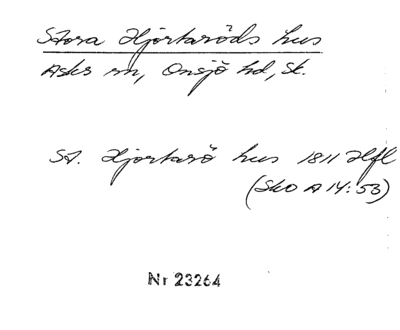 Stora Hjortaröds hus
Asks sn, Onsjö hd, Sk.
St. Hjortarö hus 1811 Hfl
(Sko A 14:53)
Nr 23264